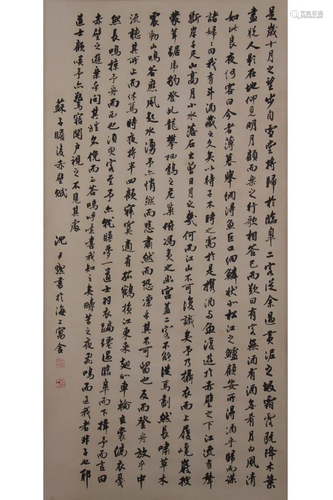 是歲十月之望步自雪堂將歸於臨皋二客從余過黃泥之坂霜露既降木葉
盡脫人影在地仰見明月顧而樂之行歌相答已而歎曰有客無酒有酒無肴月白風清
如此良夜何客曰今者薄暮舉網得魚巨口細鱗狀如松江之鱸顧安所得酒乎歸而謀
諸婦婦曰我有斗酒藏之久矣以待子不時之需於是攜酒與魚復遊於赤壁之下江流有聲
斷岸千尺山高月小水落石出曾日月之幾何而江山不可復識矣予乃攝衣而上履巉巖披
蒙茸踞虎豹登虬龍攀栖鶻之危巢俯馮夷之幽宮蓋二客不能從焉劃然長嘯草木
震動山鳴谷應風起水湧予亦悄然而悲肅然而恐凜乎其不可留也反而登舟放乎中
流聽其所止而休焉時夜將半四顧寂寥適有孤鶴橫江東來翅如車輪玄裳縞衣戛
然長鳴掠予舟而西也須臾客去予亦就睡夢一道士羽衣蹁躚過臨皋之下揖予而言曰
赤壁之遊樂乎問其姓名俛而不答嗚呼噫嘻我知之矣疇昔之夜飛鳴而過我者非子也耶
道士顧笑予亦驚寤開戶視之不見其處
蘇子瞻後赤壁賦 沈尹默書於海上寓舍